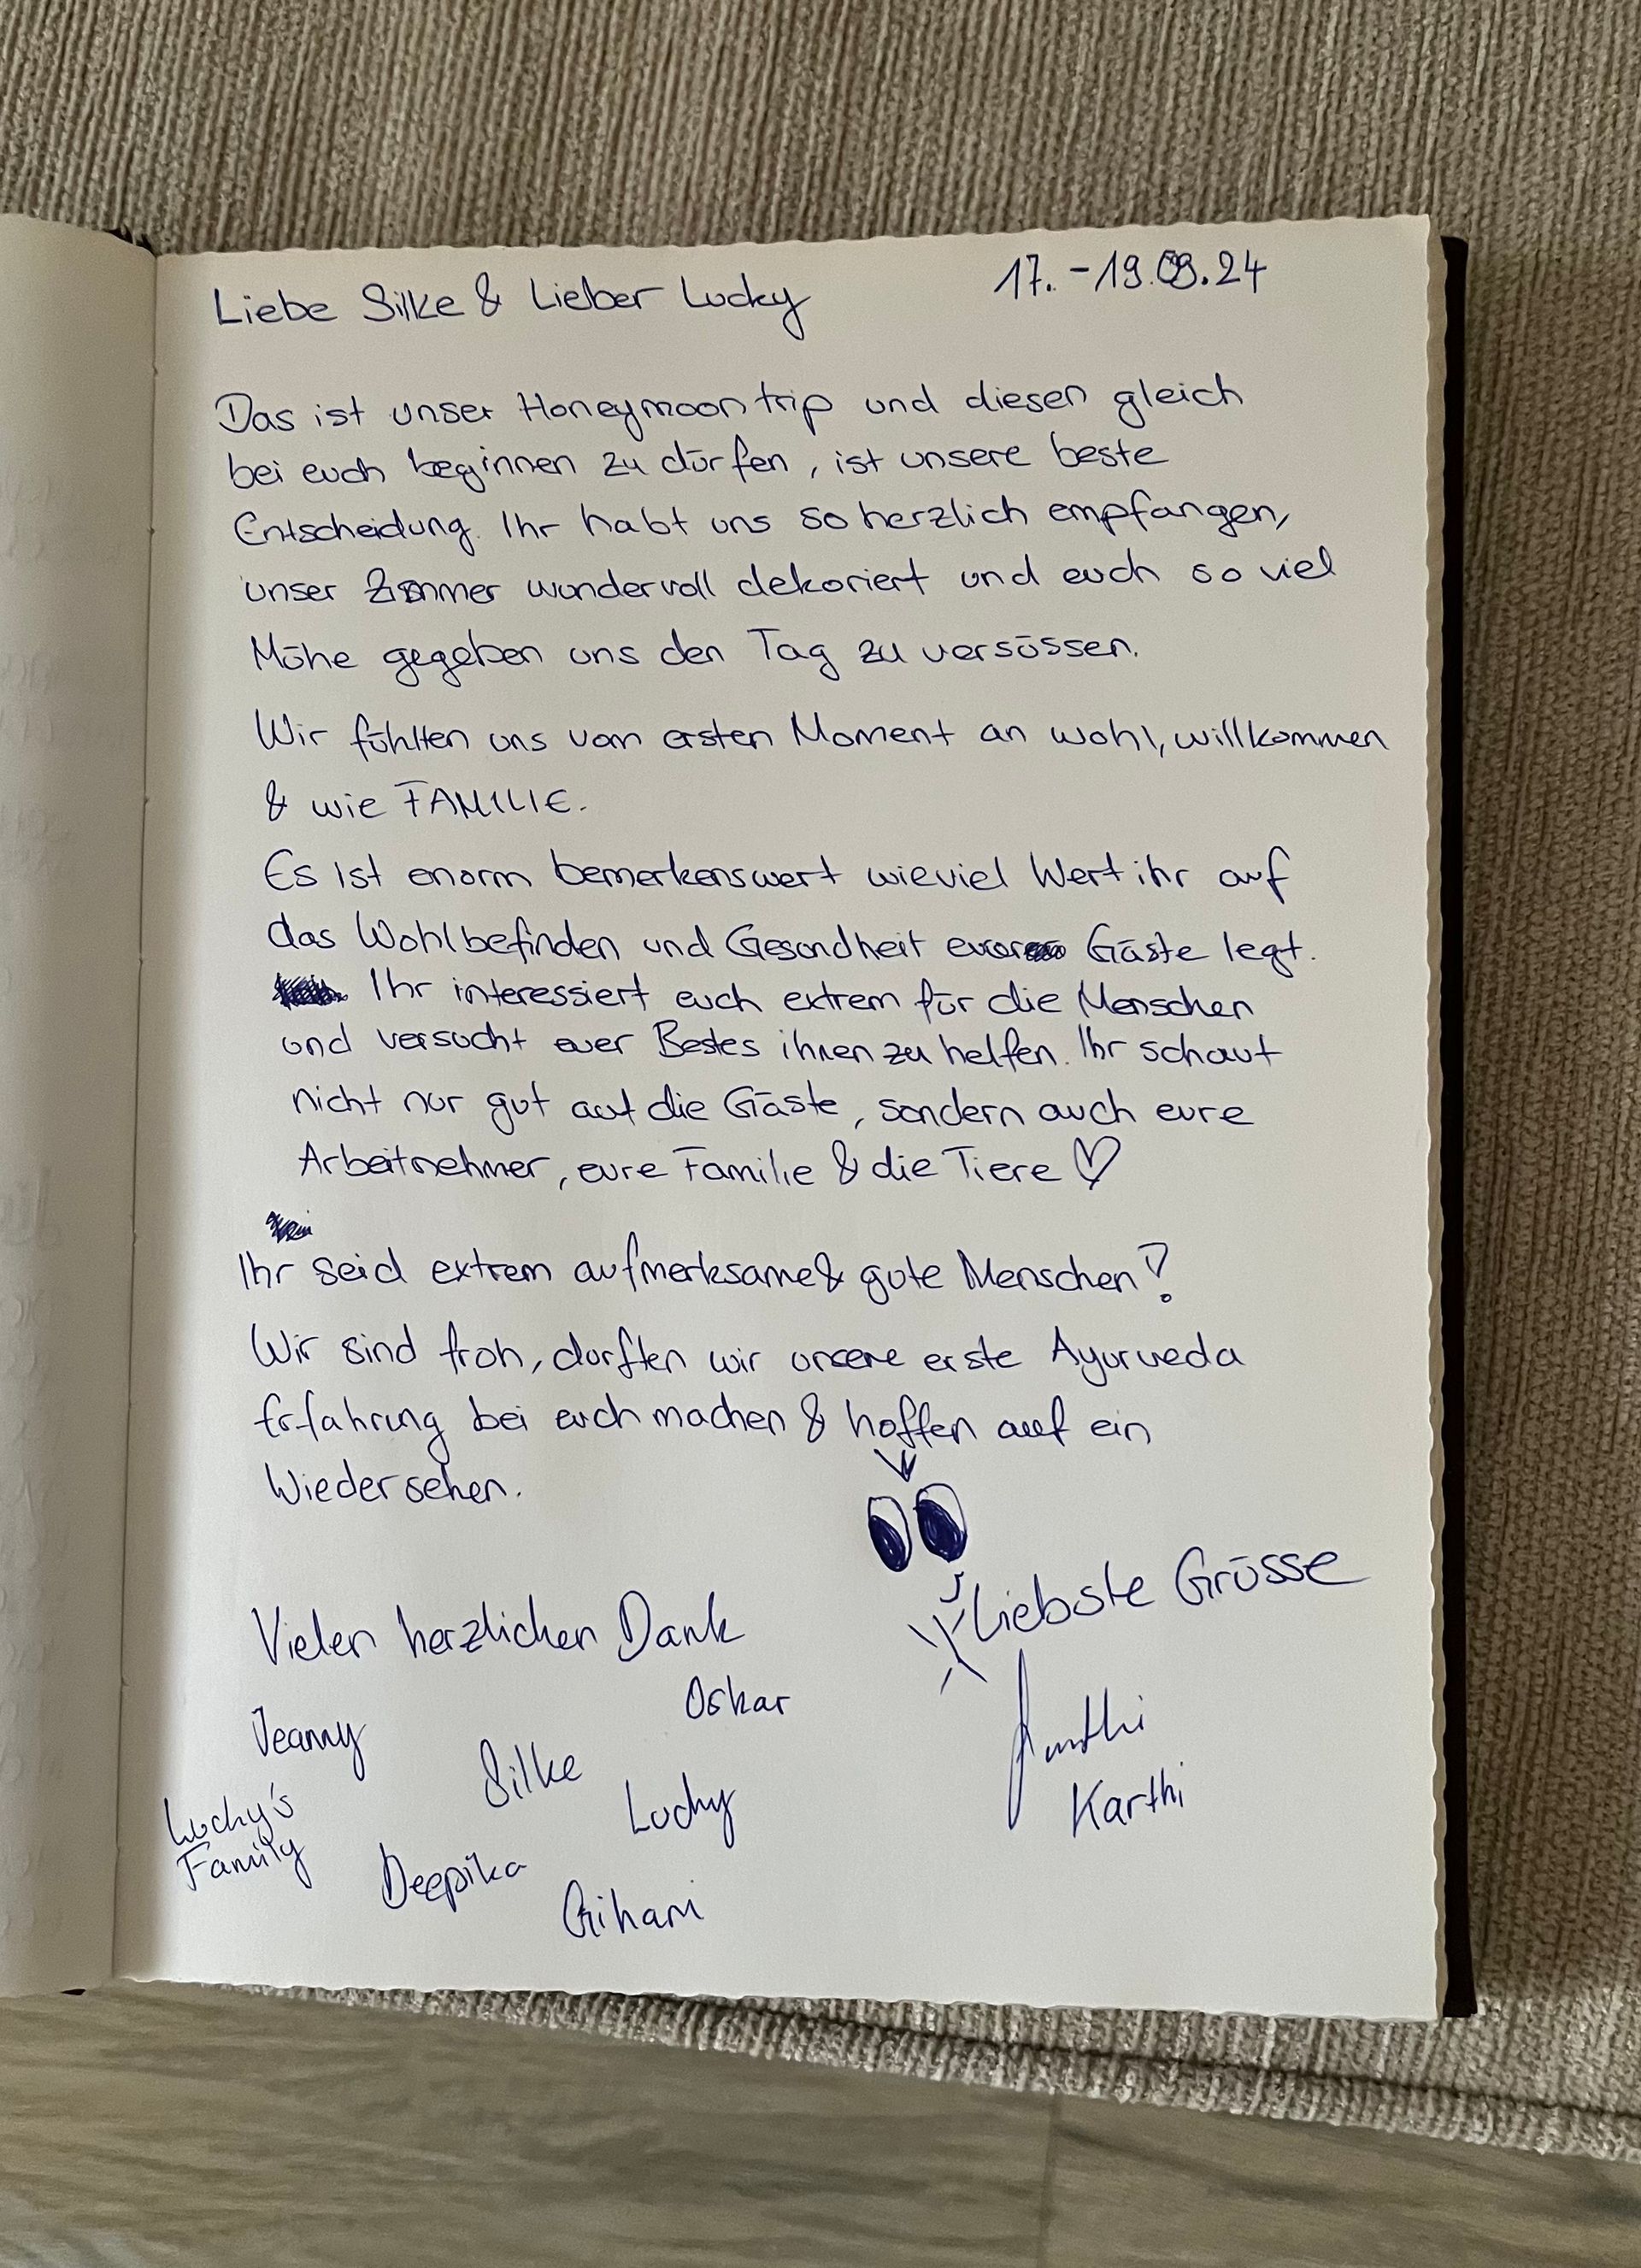 17. - 19.09.24
Liebe Silke & Lieber Lucky
Das ist unser Honeymoontrip und diesen gleich
bei euch beginnen zu dürfen, ist unsere beste
Entscheidung. Ihr habt uns so herzlich empfangen,
unser Zimmer wundervoll dekoriert und euch so viel
Mühe gegeben uns den Tag zu versüssen.
Wir fühlten uns vom ersten Moment an wohl, willkommen
& wie FAMILIE.
Es ist enorm bemerkenswert wieviel Wert ihr auf
das Wohlbefinden und Gesundheit eurer Gäste legt.
Ihr interessiert euch extrem für die Menschen
und versucht euer Bestes ihnen zu helfen. Ihr schaut
nicht nur gut auf die Gäste, sondern auch eure
Arbeitnehmer, eure Familie & die Tiere ♡
Ihr seid extrem aufmerksame & gute Menschen!
Wir sind froh, durften wir unsere erste Ayurveda
Erfahrung bei euch machen & hoffen auf ein
Wiedersehen.
Liebste Grüsse
Vielen herzlichen Dank
Oskar
Jeanny
Silke
Karthi
Lucky
Lucky's
Family
Deepika
Gihani